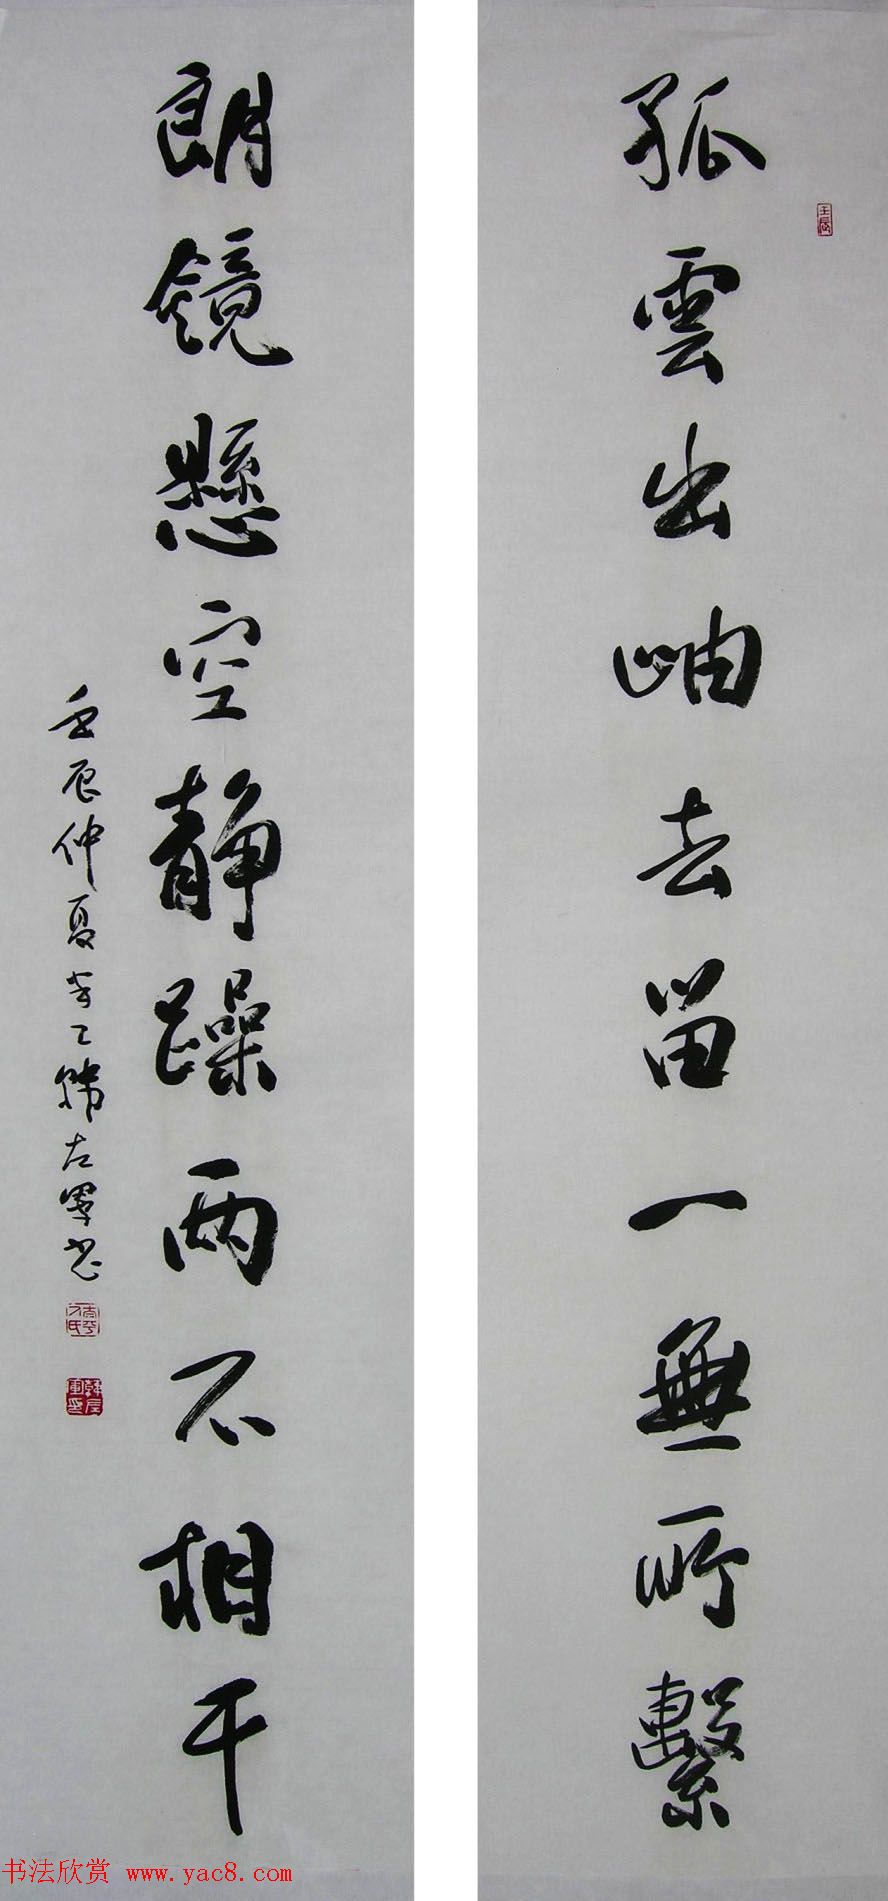 孤雲出岫去留一無所繫
壬辰
朗鏡懸空静躁兩不相干
壬辰仲夏 韩左軍书
书法欣赏 www.yac8.com